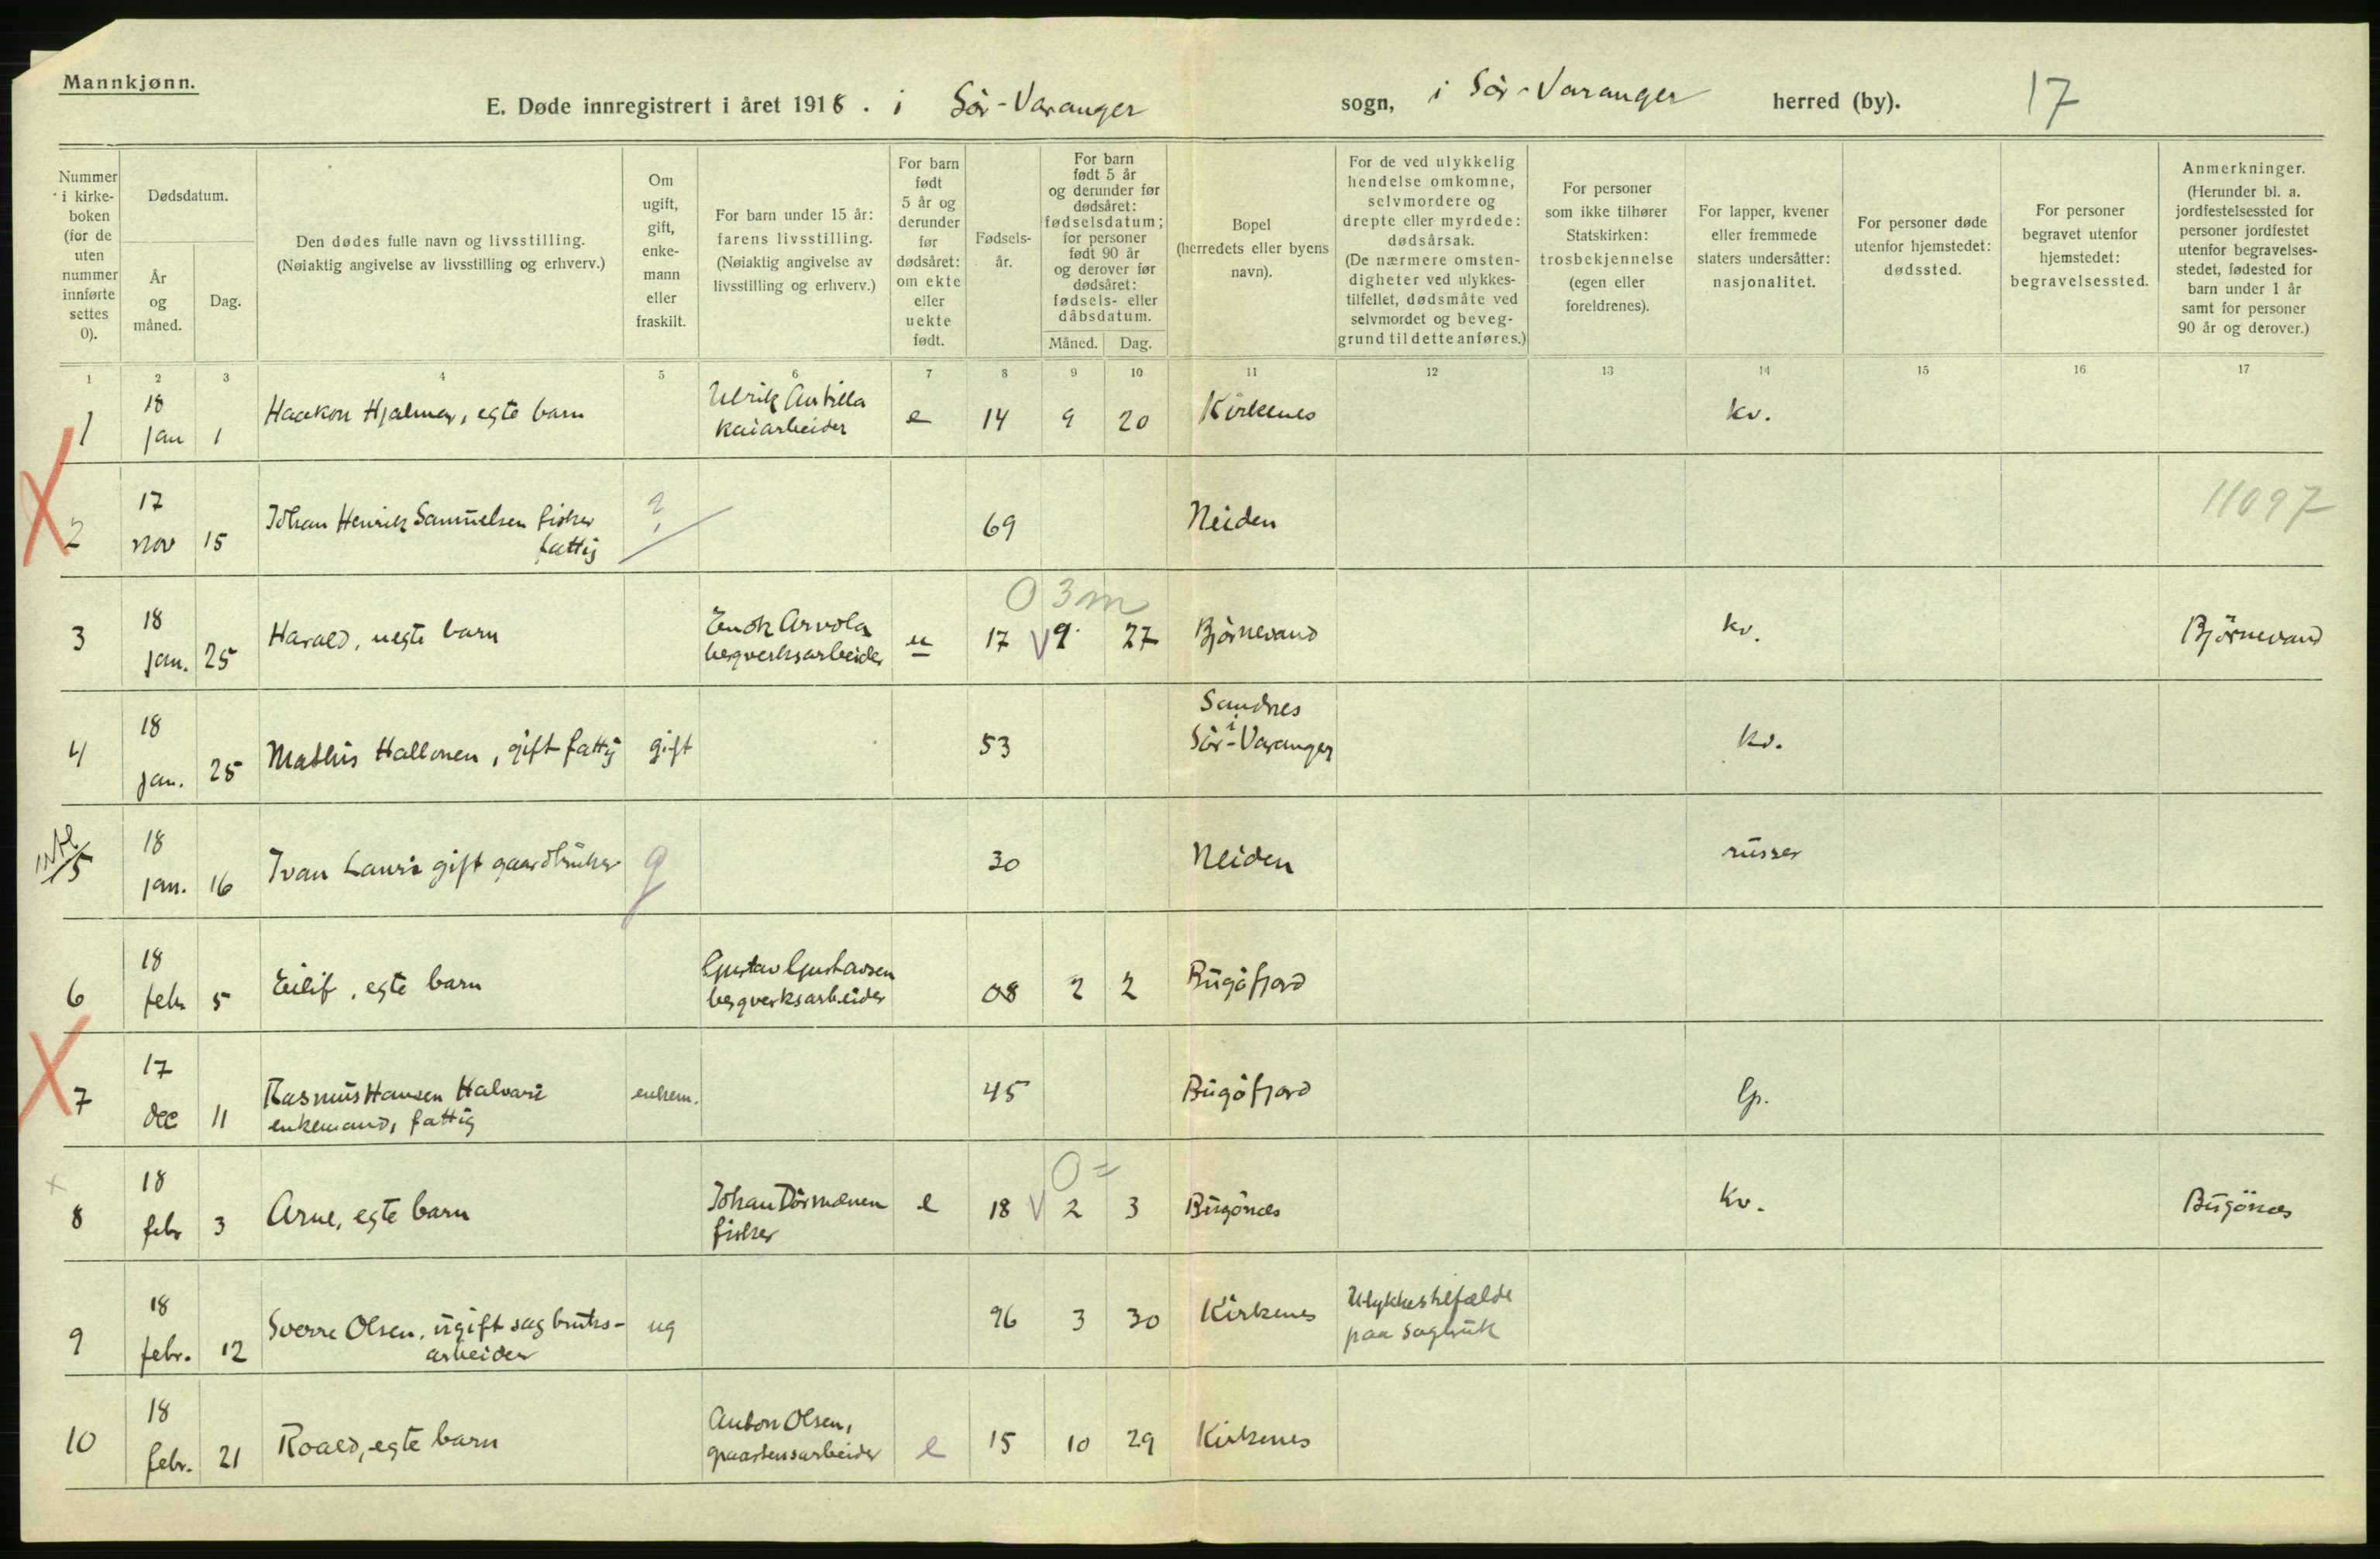 Mannkjønn.
E. Døde innregistrert i året 1918. i Sör-Varanger sogn, i Sör-Varanger herred (by). 17
Nummer i kirke- boken (for de uten nummer innførte settes 0).
Dødsdatum.
År og måned.
Dag.
Den dødes fulle navn og livsstilling.
(Nøiaktig angivelse av livsstilling og erhverv.)
Om ugift, gift, enke- mann eller fraskilt.
For barn under 15 år: farens livsstilling. (Nøiaktig angivelse av livsstilling og erhverv.)
For barn født 5 år og derunder før dødsåret: om ekte eller uekte født.
Fødsels- år.
For barn født 5 år og derunder før dødsåret: fødselsdatum; for personer født 90 år og derover før dødsåret: fødsels- eller dåbsdatum.
Måned. Dag.
Bopel (herredets eller byens navn).
For de ved ulykkelig hendelse omkomne, selvmordere og drepte eller myrdede: dødsårsak. (De nærmere omsten- digheter ved ulykkes- tilfellet, dødsmåte ved selvmordet og beveg- grund til dette anføres.)
For personer som ikke tilhører Statskirken: trosbekjennelse (egen eller foreldrenes).
For lapper, kvener eller fremmede staters undersåtter: nasjonalitet.
For personer døde utenfor hjemstedet: dødssted.
For personer begravet utenfor hjemstedet: begravelsessted.
Anmerkninger. (Herunder bl. a. jordfestelsessted for personer jordfestet utenfor begravelses- stedet, fødested for barn under 1 år samt for personer 90 år og derover.)
1 2 3 4 5 6 7 8 9 10 11 12 13 14 15 16 17
1 18 jan 1 Haakon Hjalmar, egte barn Ulrik Antilla kaiarbeider e 14 9 20 Kirkenes kv.
2 17 nov 15 Johan Henrik Samuelsen fisker fattig ? 69 Neiden 11097
0 3 m
3 18 jan. 25 Harald, uegte barn Enok Arvola bergverksarbeider u 17 V 9 27 Björnevand kv. Björnevand
4 18 jan. 25 Mathis Hallonen, gift fattig gift 53 Sandnes i Sör-Varanger kv.
5 18 jan. 16 Ivan Lauri gift gaardbruker g 30 Neiden russer
6 18 febr 5 Eilif, egte barn Gustav Gustavsen bergverksarbeider 08 2 2 Bugöfjord
7 17 dec 11 Rasmus Hansen Halvari enkemand, fattig enkem. 45 Bugöfjord lp.
0 =
x 8 18 febr 3 Arne, egte barn Johan Törmänen fisker e 18 V 2 3 Bugönes kv. Bugönes
9 18 febr. 12 Sverre Olsen, ugift sagbruks- arbeider ug 96 3 30 Kirkenes Ulykkestilfælde paa sagbruk
10 18 febr. 21 Roald, egte barn Anton Olsen, e 15 10 29 Kirkenes